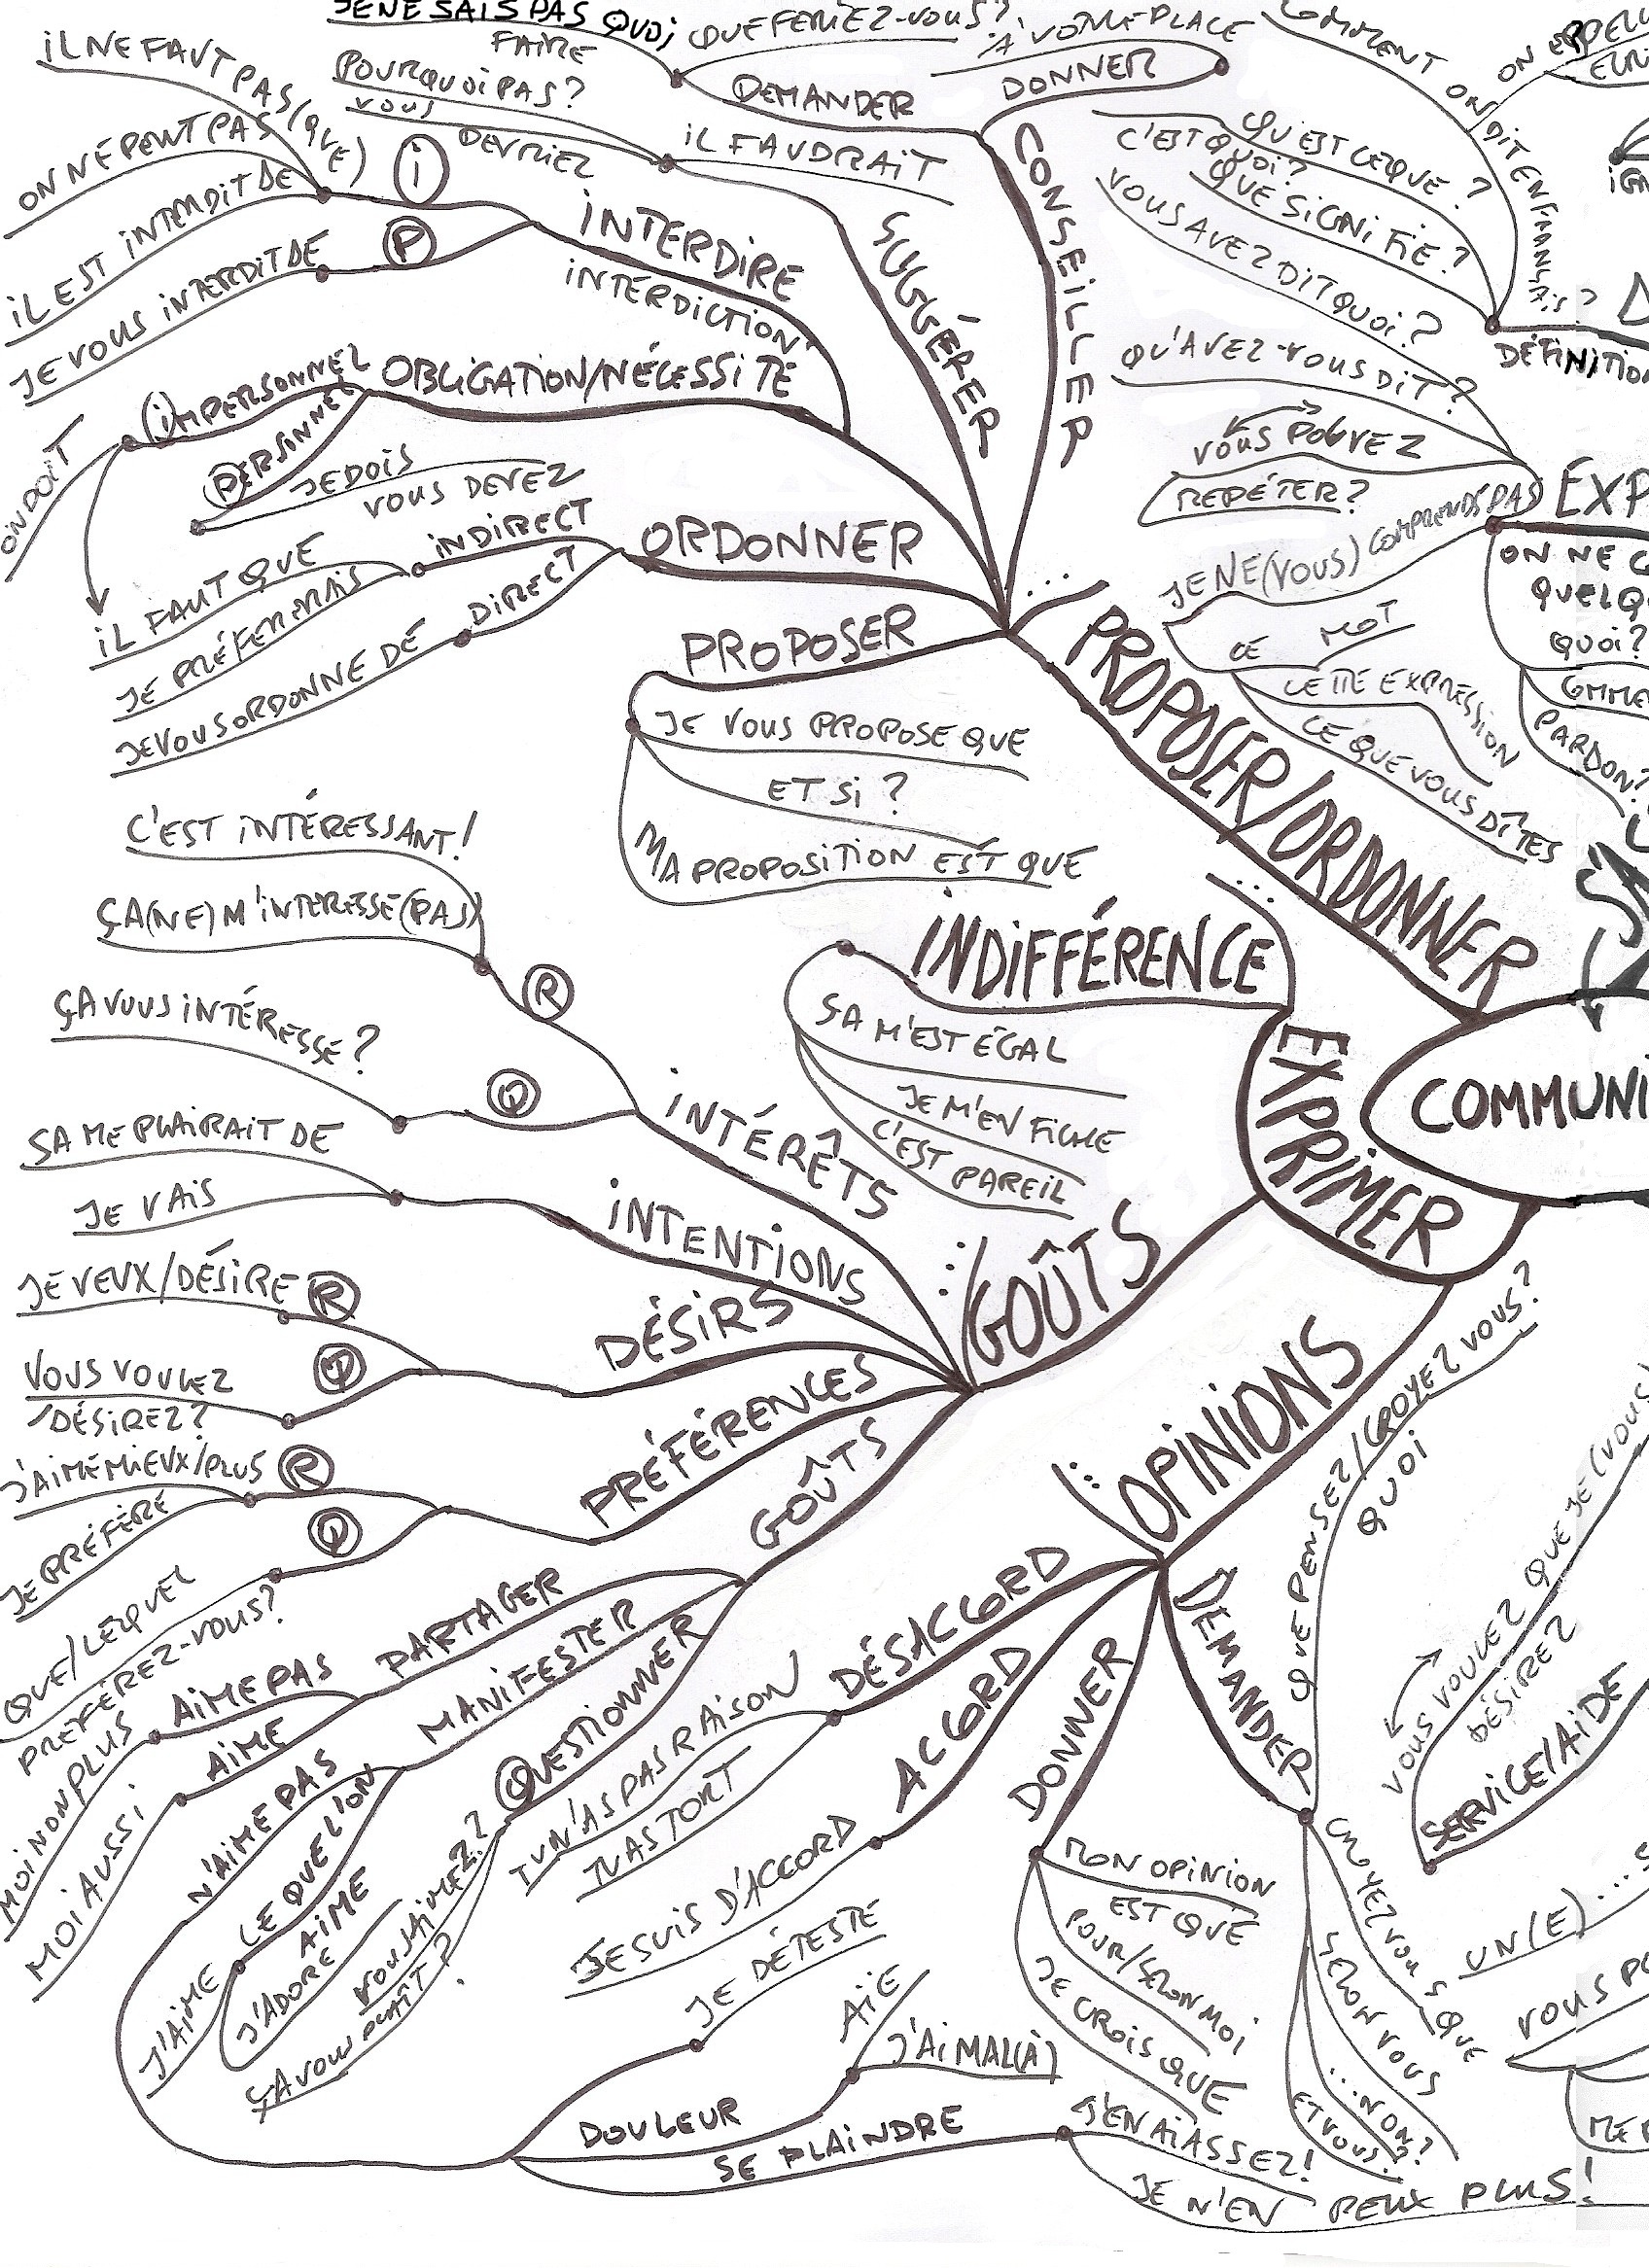 JE NE SAIS PAS QUOI
FAIRE
QUE FERIEZ-VOUS?
A VOTRE PLACE
DEMANDER
DONNER
CONSEILLER
POURQUOI PAS?
VOUS
DEVRIEZ
IL FAUDRAIT
SUGGÉRER
IL NE FAUT PAS (QUE)
ON NE PEUT PAS
IL EST INTERDIT DE
I
JE VOUS INTERDIT DE
P
INTERDIRE
INTERDICTION
OBLIGATION/NÉCESSITÉ
IMPERSONNEL
PERSONNEL
ON DOIT
JE DOIS
VOUS DEVEZ
ORDONNER
INDIRECT
DIRECT
IL FAUT QUE
JE PRÉFERERAIS
JE VOUS ORDONNE DE
PROPOSER
JE VOUS PROPOSE QUE
ET SI ?
MA PROPOSITION EST QUE
...
PROPOSER/ORDONNER
COMMENT ON DIT EN FRANÇAIS?
ON
QU'EST CE QUE ?
C'EST QUOI?
QUE SIGNIFIE?
VOUS AVEZ DIT QUOI?
DÉFINITION
QU'AVEZ-VOUS DIT?
VOUS POUVEZ
RÉPÉTER?
JE NE (VOUS) COMPRENDS PAS
CE MOT
CETTE EXPRESSION
CE QUE VOUS DÎTES
EXP
ON NE C
QUELQ
QUOI?
COMME
PARDON?
COMMUNI
EXPRIMER
...
INDIFFÉRENCE
SA M'EST ÉGAL
JE M'EN FICHE
C'EST PAREIL
...
GOÛTS
INTÉRÊTS
C'EST INTÉRESSANT!
ÇA (NE) M'INTERESSE (PAS)
R
ÇA VOUS INTÉRESSE?
Q
INTENTIONS
SA ME PLAIRAIT DE
JE VAIS
DÉSIRS
JE VEUX/DÉSIRE
R
VOUS VOULEZ
/DÉSIREZ?
Q
PRÉFÉRENCES
J'AIME MIEUX/PLUS
JE PRÉFÈRE
R
QUE/LEQUEL
PRÉFÉREZ-VOUS?
Q
GOÛTS
PARTAGER
AIME PAS
MOI NON PLUS
AIME
MOI AUSSI
MANIFESTER
N'AIME PAS
CE QUE L'ON
AIME
J'AIME
J'ADORE
QUESTIONNER
VOUS AIMEZ?
ÇA VOUS PLAÎT?
DOULEUR
JE DÉTESTE
AÏE
J'AI MAL(À)
SE PLAINDRE
J'EN AI ASSEZ!
JE N'EN PEUX PLUS!
...
OPINIONS
DÉSACCORD
TU N'AS PAS RAISON
TU AS TORT
ACCORD
JE SUIS D'ACCORD
DONNER
MON OPINION
EST QUE
POUR/SELON MOI
JE CROIS QUE
DEMANDER
QUE PENSEZ/CROYEZ VOUS?
QUOI
CROYEZ VOUS QUE
SELON VOUS
...NON?
ET VOUS?
VOUS VOULEZ QUE JE (VOUS)
DÉSIREZ
SERVICE/AIDE
UN(E)....
VOUS P